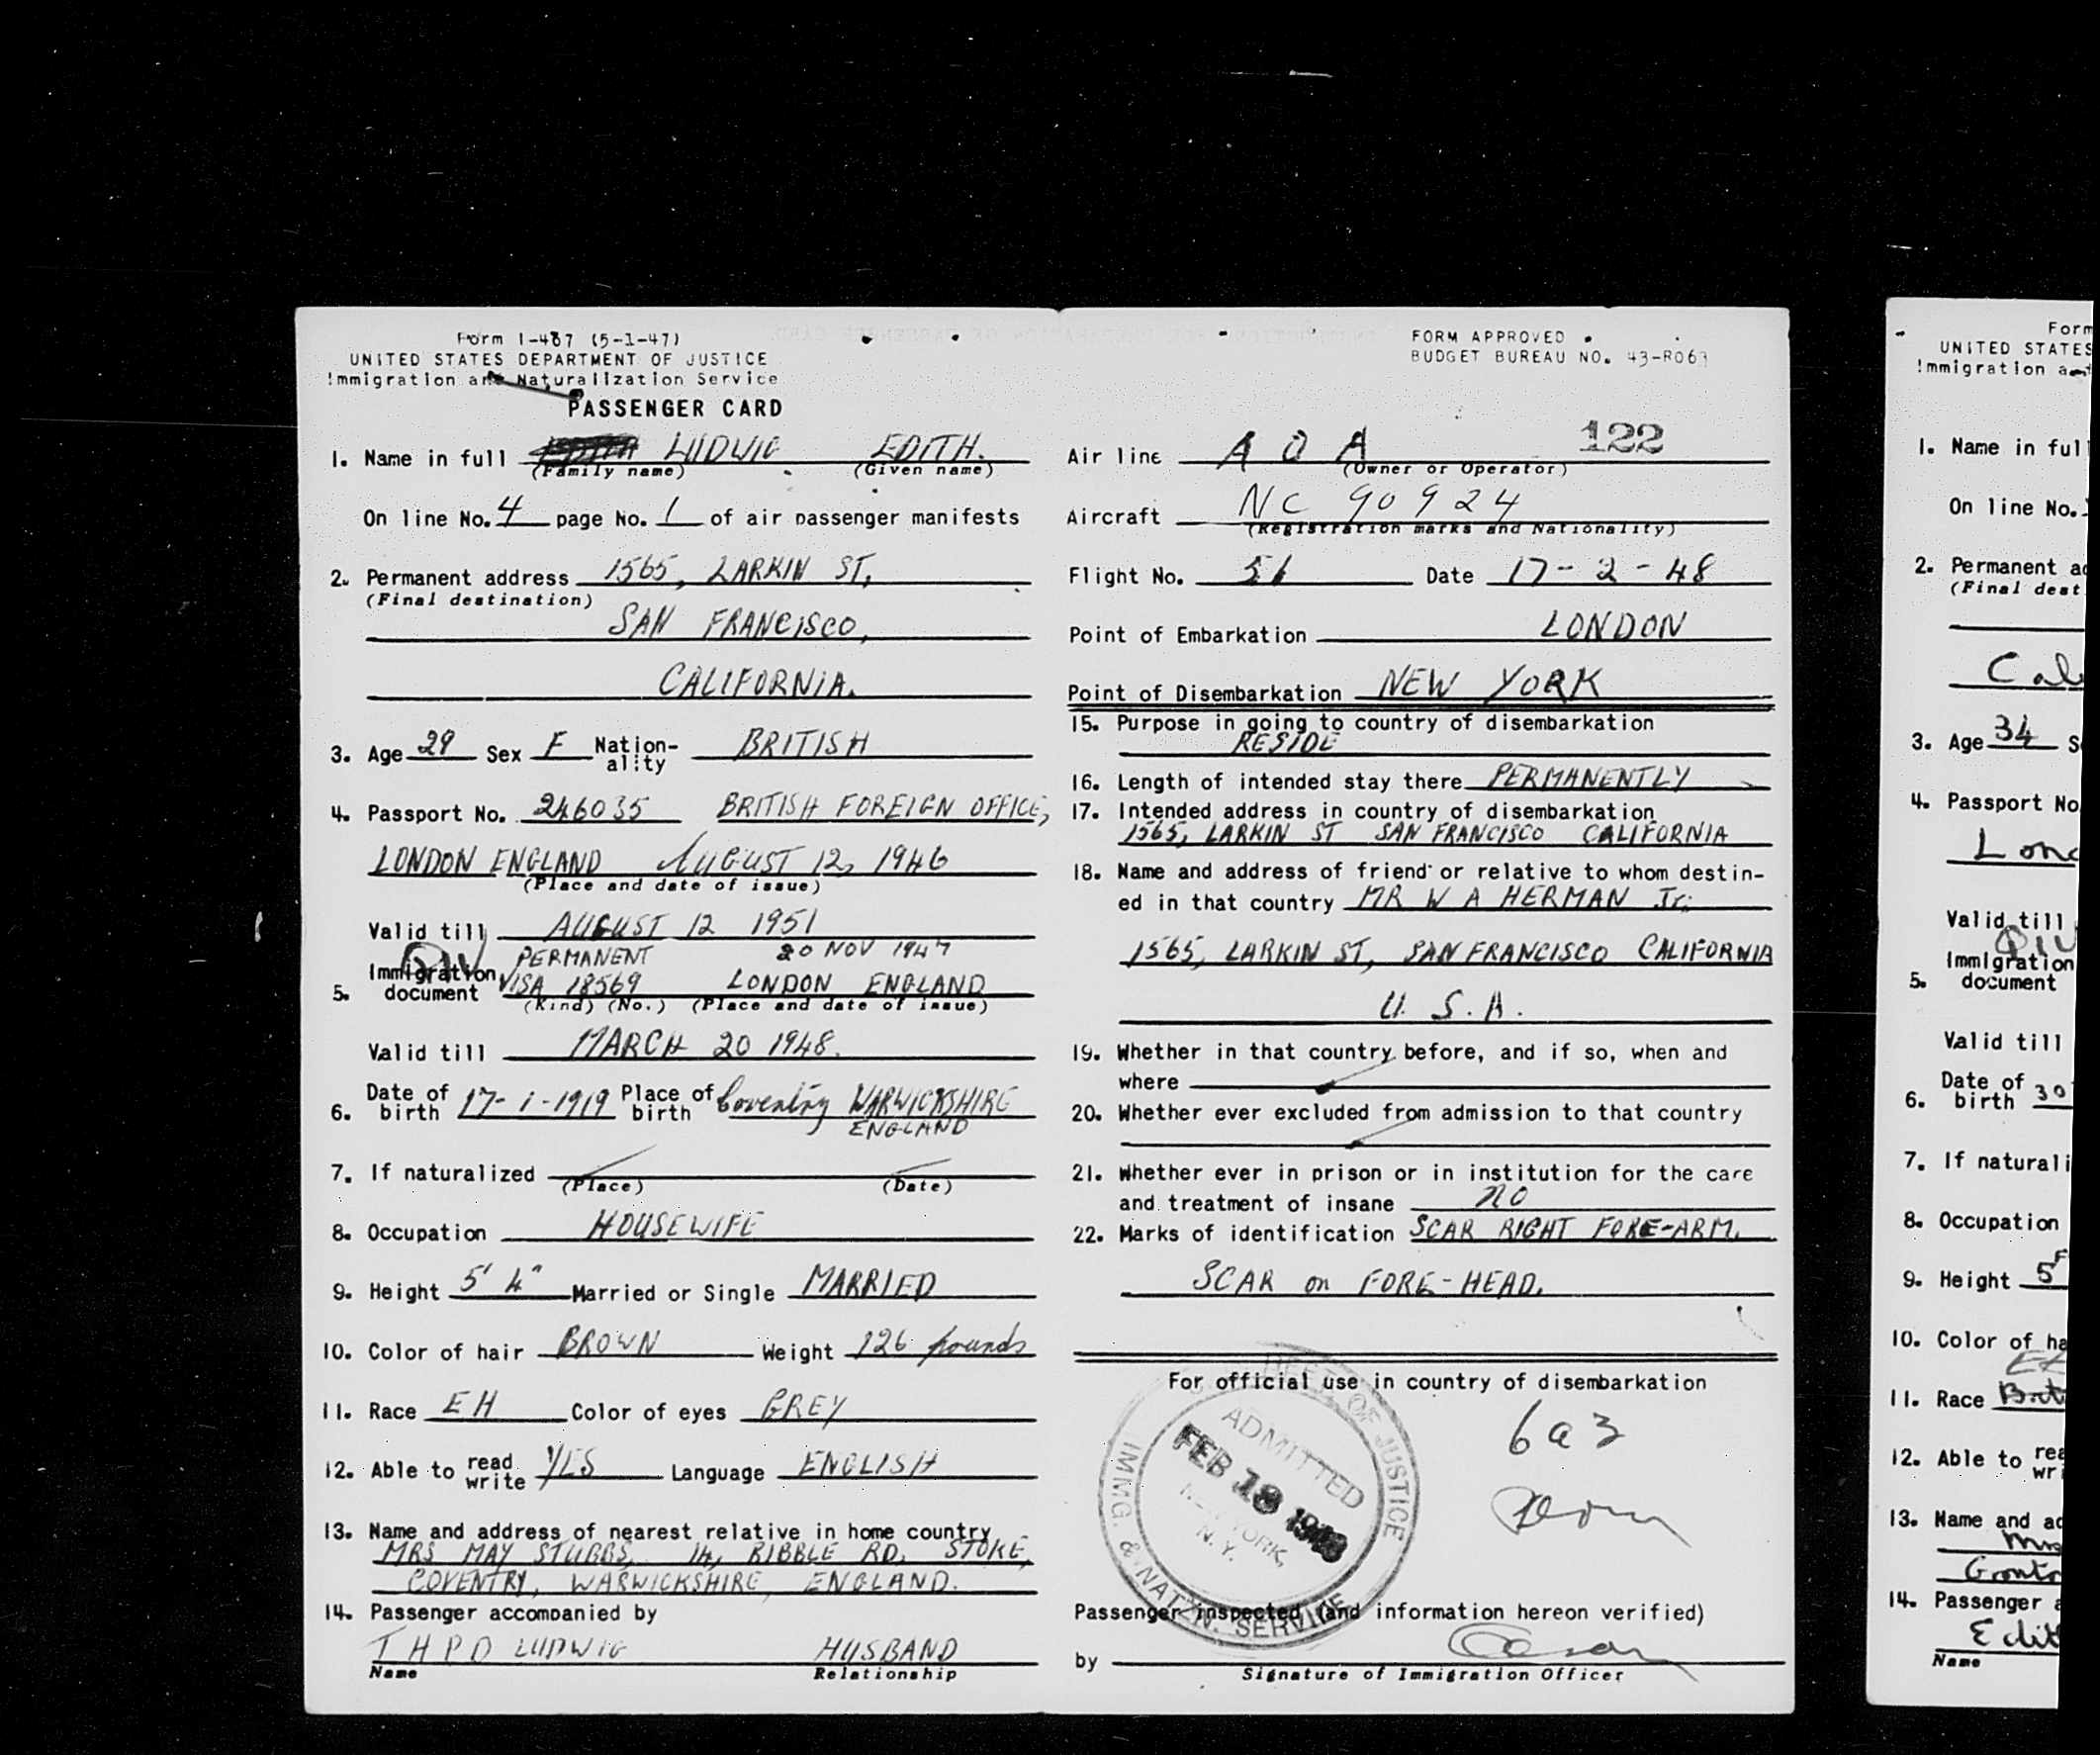 Form I-487 (5-1-47)
UNITED STATES DEPARTMENT OF JUSTICE
Immigration and Naturalization Service
PASSENGER CARD
1. Name in full LUDWIG EDITH.
(Family name) (Given name)
On line No. 4 page No. 1 of air passenger manifests
2. Permanent address 1565, LARKIN ST,
(Final destination)
SAN FRANCISCO,
CALIFORNIA.
3. Age 29 Sex F Nation-ality BRITISH
4. Passport No. 246035 BRITISH FOREIGN OFFICE,
LONDON ENGLAND AUGUST 12, 1946
(Place and date of issue)
Valid till AUGUST 12 1951
PERMANENT 20 NOV 1947
5. Immigration document VISA 18569 LONDON ENGLAND
(Kind) (No.) (Place and date of issue)
Valid till MARCH 20 1948.
6. Date of birth 17-1-1919 Place of birth Coventry WARWICKSHIRE
ENGLAND
7. If naturalized
(Place) (Date)
8. Occupation HOUSEWIFE
9. Height 5' 4" Married or Single MARRIED
10. Color of hair BROWN Weight 126 pounds
11. Race EH Color of eyes GREY
12. Able to read write YES Language ENGLISH
13. Name and address of nearest relative in home country
MRS MAY STUBBS, 14, RIBBLE RD. STOKE,
COVENTRY, WARWICKSHIRE, ENGLAND.
14. Passenger accompanied by
T H P D LUDWIG HUSBAND
Name Relationship
FORM APPROVED
BUDGET BUREAU NO. 43-R063
122
Air line A O A
(Owner or Operator)
Aircraft NC 90924
(Registration marks and Nationality)
Flight No. 51 Date 17-2-48
Point of Embarkation LONDON
Point of Disembarkation NEW YORK
15. Purpose in going to country of disembarkation
RESIDE
16. Length of intended stay there PERMANENTLY
17. Intended address in country of disembarkation
1565, LARKIN ST SAN FRANCISCO CALIFORNIA
18. Name and address of friend or relative to whom destin-
ed in that country MR W A HERMAN Jr;
1565, LARKIN ST, SAN FRANCISCO CALIFORNIA
U. S. A.
19. Whether in that country before, and if so, when and
where
20. Whether ever excluded from admission to that country
21. Whether ever in prison or in institution for the care
and treatment of insane NO
22. Marks of identification SCAR RIGHT FORE-ARM.
SCAR on FORE-HEAD.
For official use in country of disembarkation
6a3
DEPT. OF JUSTICE
ADMITTED
FEB 18 1948
NEW YORK,
N.Y.
IMMG. & NATZN. SERVICE
Passenger inspected (and information hereon verified)
by
Signature of Immigration Officer
Form
UNITED STATES
Immigration
1. Name in full
On line No.
2. Permanent
(Final dest
Cal
3. Age 34 S
4. Passport No
Lond
Valid till
5. Immigration document
Valid till
6. Date of birth 30
7. If naturali
8. Occupation
9. Height 5
10. Color of ha
11. Race Brit
12. Able to
13. Name and
14. Passenger
Edit
Name